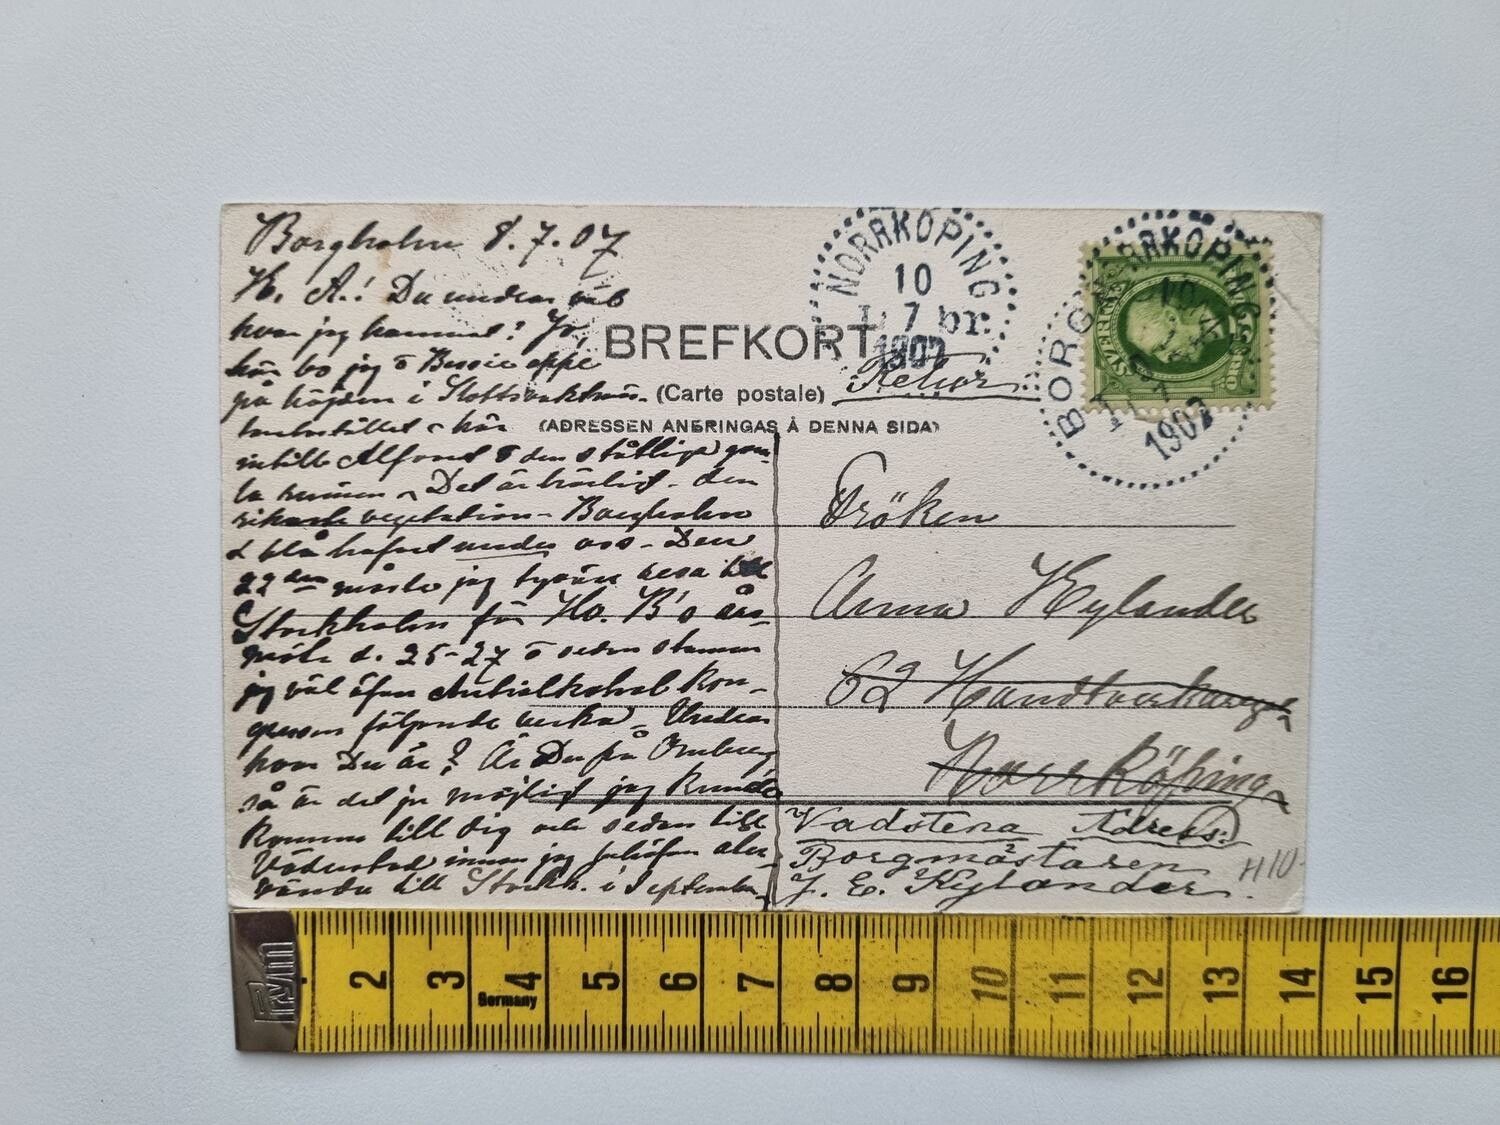 Borgholm 8.7.07
K. A.! Du undrar väl
hvar jag hamnat? Jo,
här bo jag o Bessie uppe
på höjden i Slotts
här
intill Alfonst o den ståtliga gam-
la ruinen. Det är härligt. den
rikaste vegetation - Borgholm
o blå hafvet under oss - Den
22 den måste jag tyvärr resa till
Stockholm för Ho. B's års-
möte d. 25-27 o sedan stannar
jag väl öfver Antialkohol kon-
gressen följande vecka. Undrar
hvar Du är? Är Du på Omberg
så är det ju möjligt jag kunde
komma till dig och sedan till
Väderstad innan jag behöfver åter-
vända till Stockh. i September.
BREFKORT
(Carte postale)
(ADRESSEN ANBRINGAS Å DENNA SIDA)
Retur
NORRKÖPING
10
7
1907
BORG
1907
NORRKÖPING
10
SVERIGE
5
ÖRE
Fröken
Anna Kylander
62 Handtverkareg.
Norrköping
Vadstena Adress:
Borgmästaren
J. E. Kylander.
H10
Prym
2 3 4 5 6 7 8 9 10 11 12 13 14 15 16
Germany